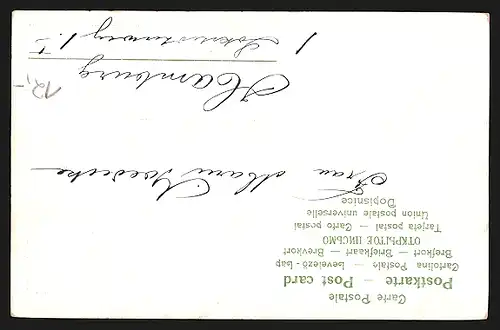 Carte Postale
Postkarte — Post card
Cartolina Postale — Levelező-Lap
Brefkort — Briefkaart — Brevkort
ОТКРЫТОЕ ПИСЬМО
Tarjeta postal — Carto postal
Union postale universelle
Dopisnice
Frau
Hamburg
I
12,-